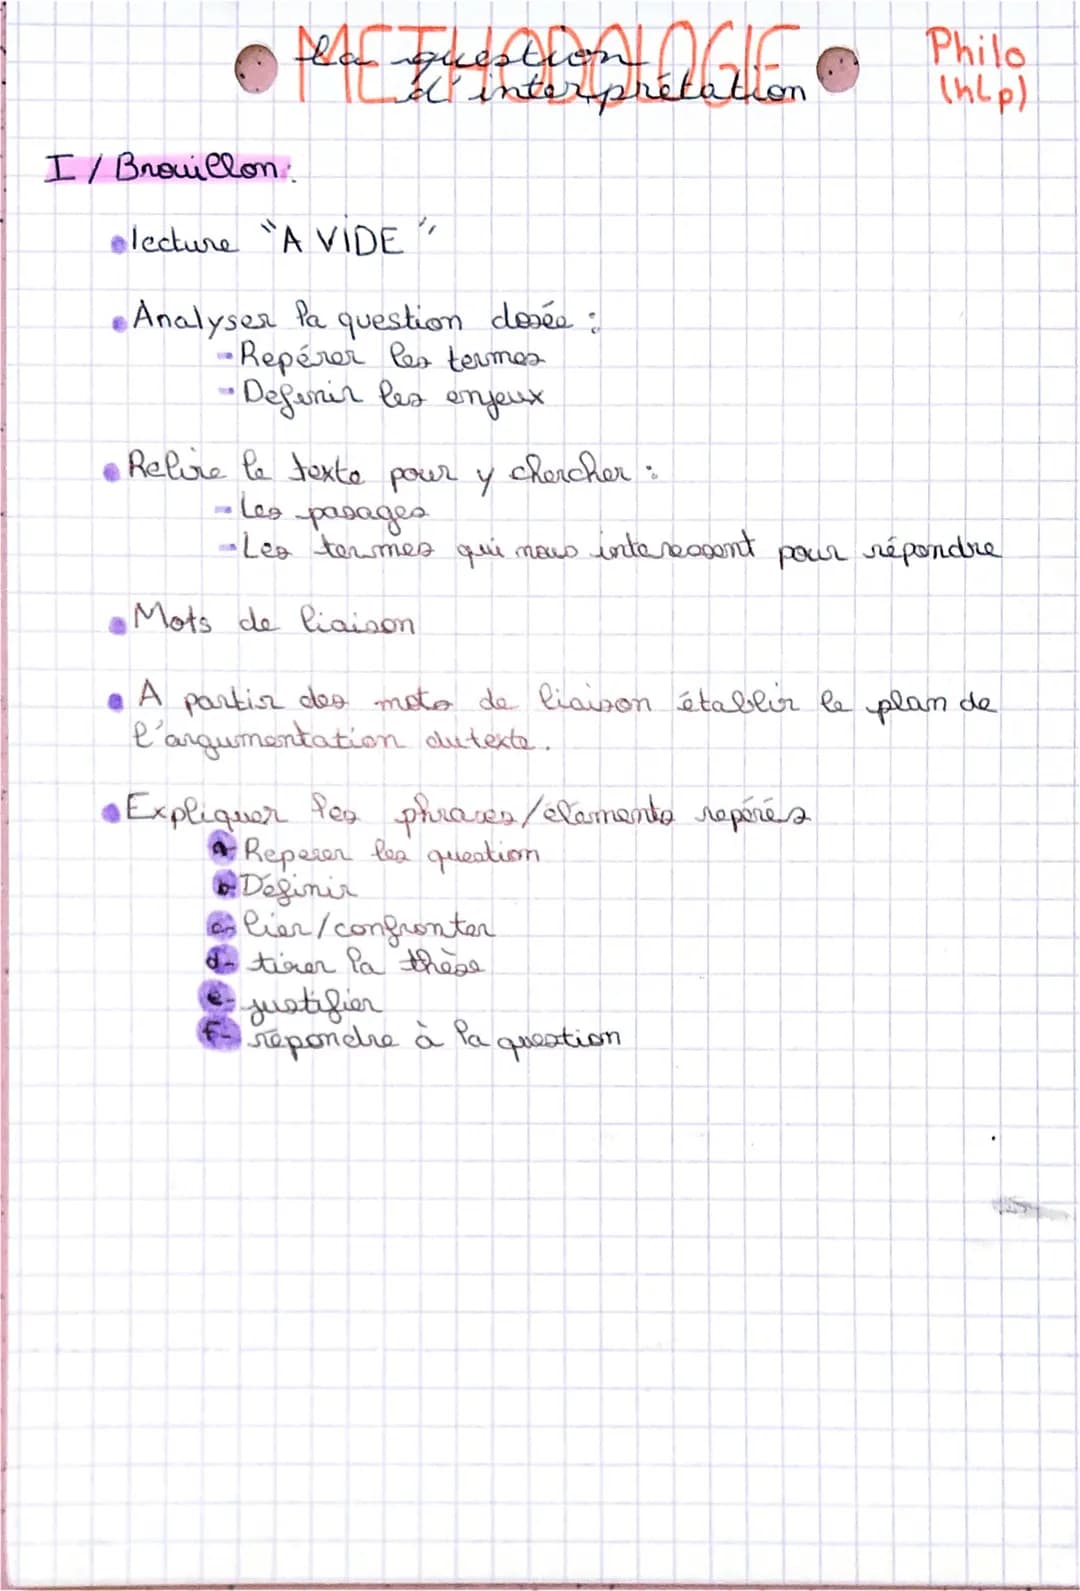 METHODOLOGIE
la question
d'interprétation
Philo
(hLp)
I / Brouillon:
lecture "A VIDE"
Analyser la question dosée :
- Repérer les termes
- Defenir les enjeux
Relire le texte pour y chercher :
- Les pasages
- Les termes qui nous interessent pour répondre
Mots de liaison
A partir des mots de liaison établir le plan de
l'argumentation du texte.
Expliquer les phrases/élements repérés
a- Reperer les question
b- Définir
c- lier/confronter
d- tirer la thèse
e- justifier
F- répondre à la question